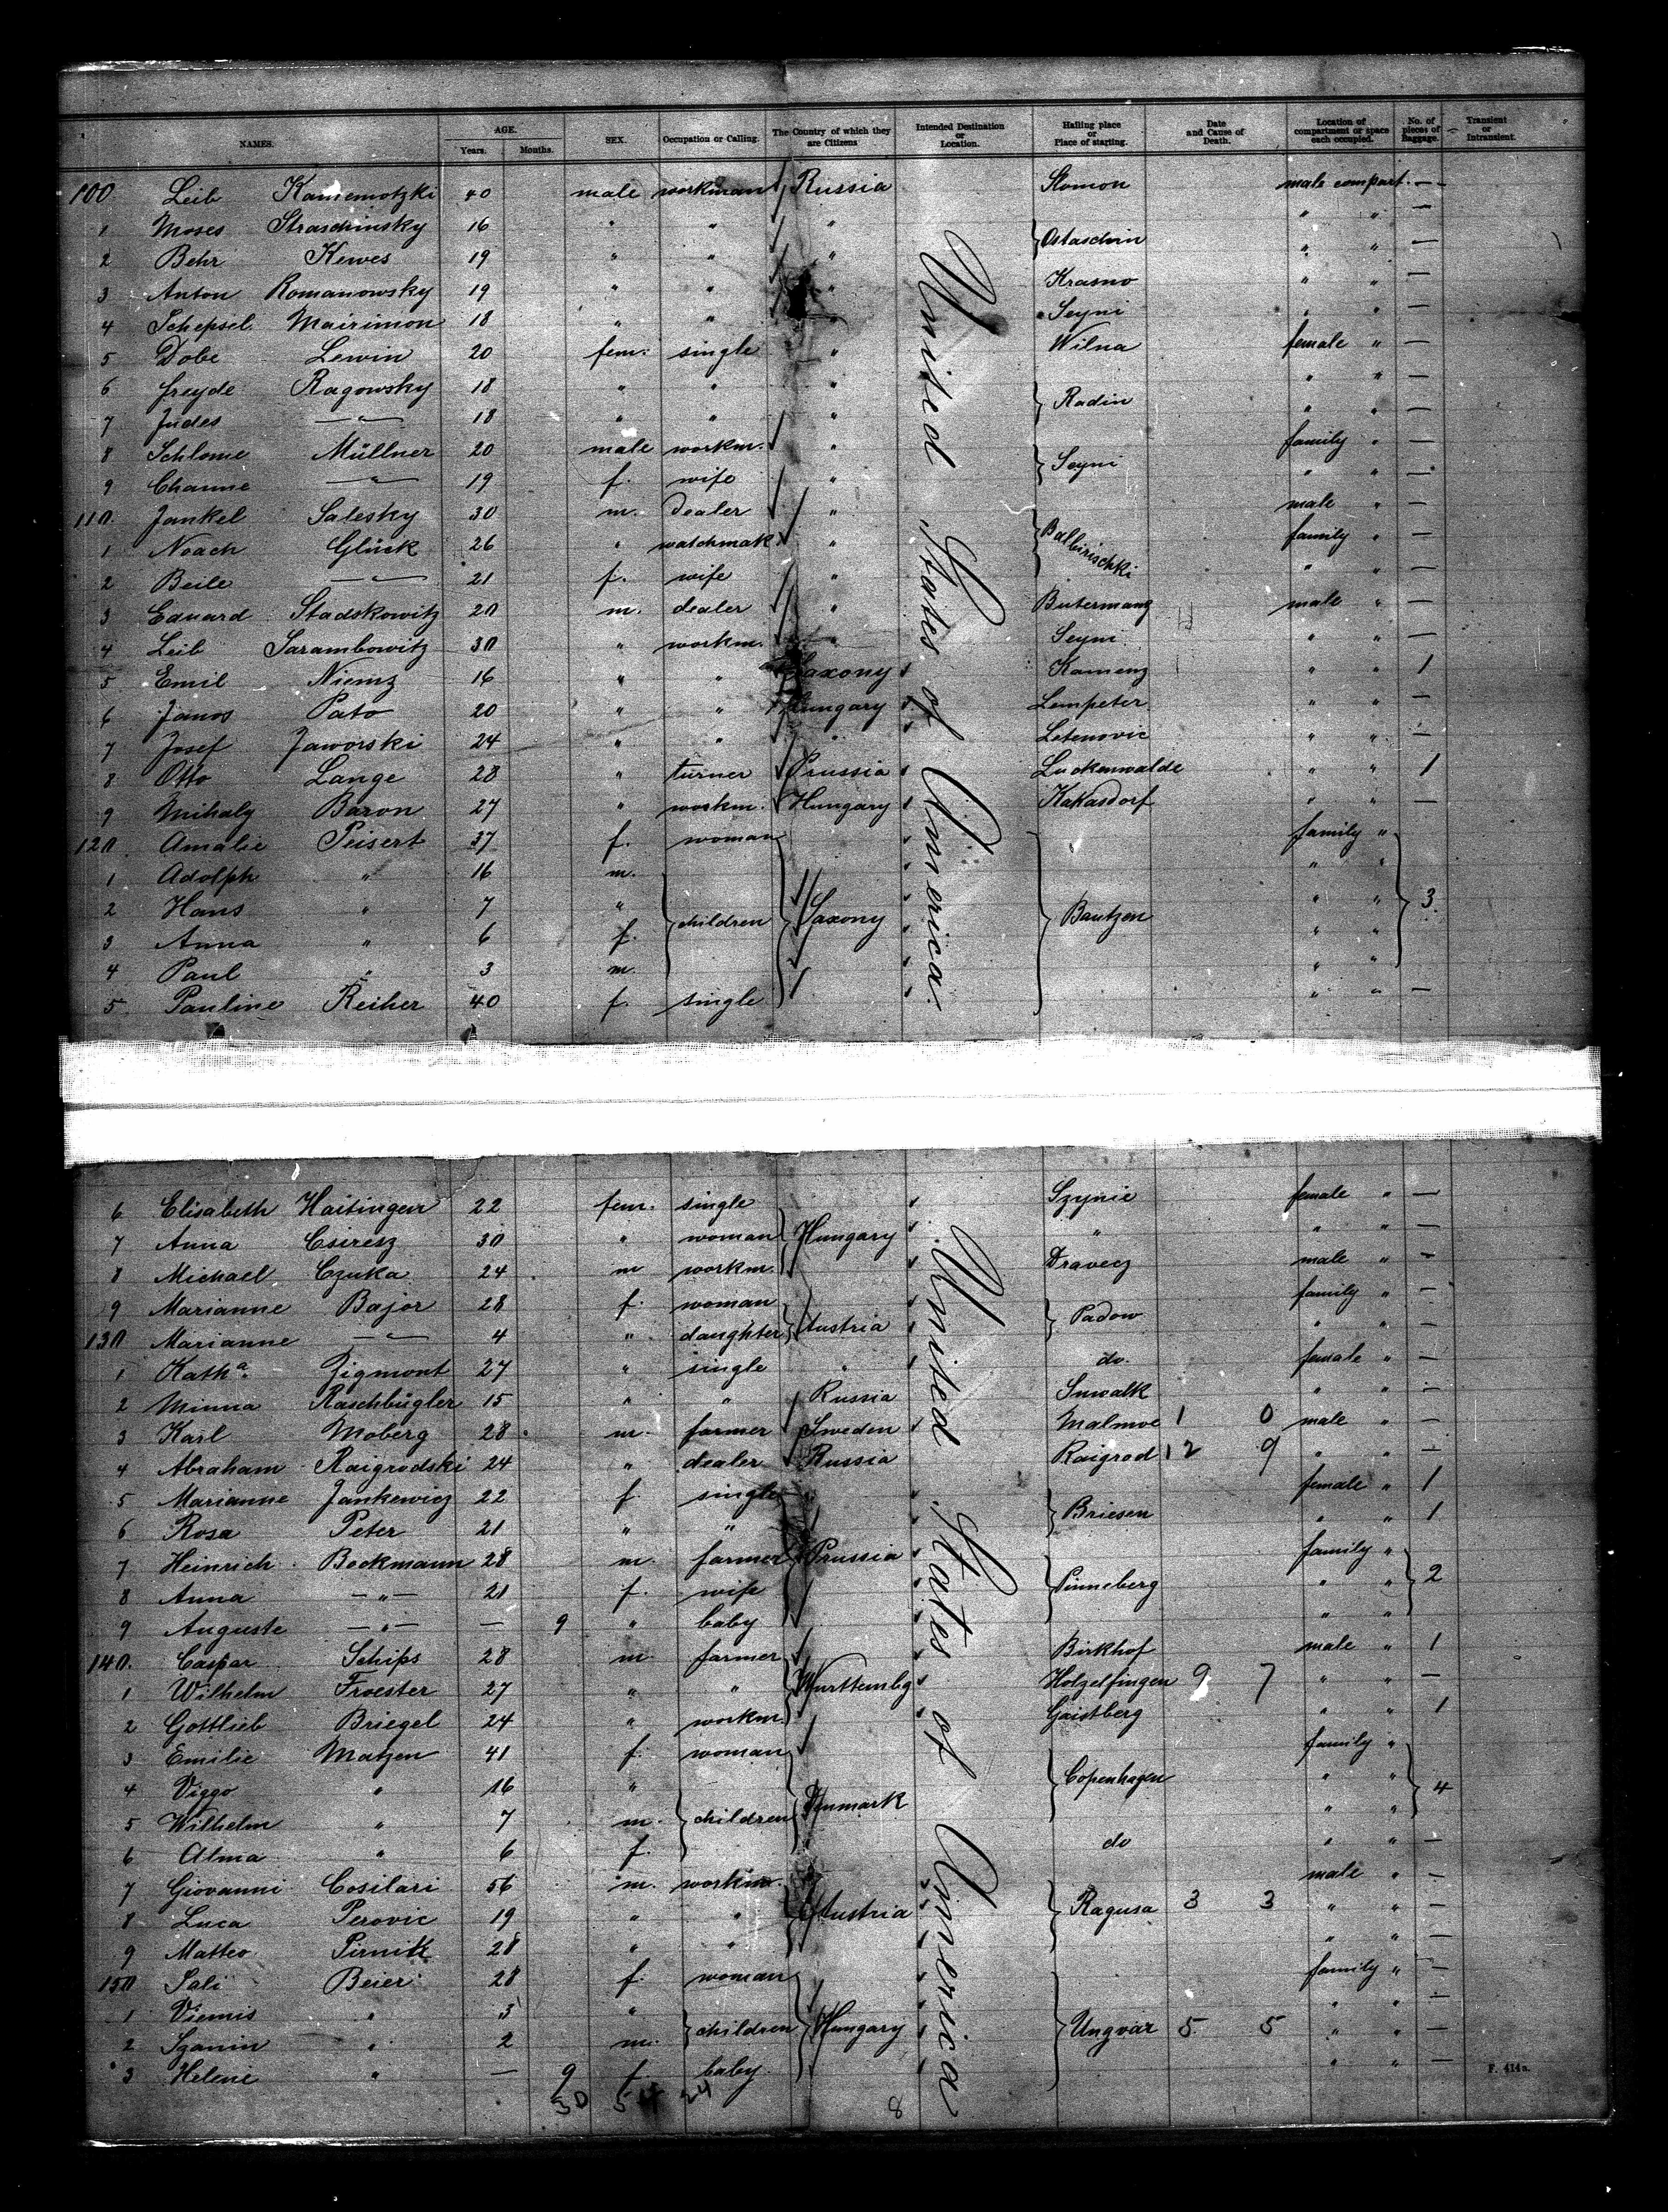 NAMES. AGE. Years. Months. SEX. Occupation or Calling. The Country of which they are Citizens Intended Destination or Location. Hailing place or Place of starting. Date and Cause of Death. Location of compartment or space each occupied. No. of pieces of Baggage. Transient or Intransient.
100 Leib Kamemotzki 40 male workman Russia Slomon male compart. —
1 Moses Straschinsky 16 " " " " " —
2 Behr Kewes 19 " " " Ostaschin " " —
3 Anton Romanowsky 19 " " " Krasno " " —
4 Schepsel Mairimon 18 " " " Seyni " " —
5 Dobe Lewin 20 fem. single " Wilna female " —
6 Freyde Ragowsky 18 " " " Radin " " —
7 Judes —"— 18 " " " " " —
8 Schlome Müllner 20 male workm. " Seyni family " —
9 Channe —"— 19 f. wife " " " —
110. Jankel Salesky 30 m. dealer " Balbirischki male " —
1 Noach Glück 26 " watchmak. " family " —
2 Beile —"— 21 f. wife " " " —
3 Eduard Stadskowitz 20 m. dealer " Butermanz male " —
4 Leib Sarambowitz 30 " workm. " Seyni " " —
5 Emil Niemz 16 " " Saxony Kamenz " " 1
6 Janos Pato 20 " " Hungary Lempeter " " —
7 Josef Jaworski 24 " " " Letenovic " " —
8 Otto Lange 28 " turner Prussia Luckenwalde " " 1
9 Mihaly Baron 27 " workm. Hungary Kakasdorf " " —
120 Amalie Peisert 37 f. woman family "
1 Adolph " 16 m. " "
2 Hans " 7 " children Saxony Bautzen " " 3.
3 Anna " 6 f. " "
4 Paul " 3 m. " "
5 Pauline Reiher 40 f. single " " —
United States of America.
6 Elisabeth Haitinger 22 fem. single Szynie female " —
7 Anna Cseresz 30 " woman Hungary " " " —
8 Michael Czuka 24 m workm. Dravecz male " —
9 Marianne Bajor 28 f. woman Austria Padow family " —
130 Marianne —"— 4 " daughter " " —
1 Katha Zigmont 27 " single " do. female " —
2 Minna Raschbügler 15 " " Russia Suwalk " " —
3 Karl Moberg 28 m. farmer Sweden Malmoe 1 0 male " —
4 Abraham Raigrodski 24 " dealer Russia Raigrod 12 9 " " —
5 Marianne Jankewicz 22 f. single " Briesen female " 1
6 Rosa Peter 21 " " " " 1
7 Heinrich Beckmann 28 m. farmer Prussia family "
8 Anna —"— 21 f. wife Pinneberg " " 2
9 Auguste —"— — 9 " baby " "
140. Caspar Schips 28 m. farmer Birkhof male " 1
1 Wilhelm Froester 27 " " Württembg Holzelfingen 9 7 " " —
2 Gottlieb Briegel 24 " workm. Gaistberg " " 1
3 Emilie Matzen 41 f. woman family "
4 Viggo " 16 " Copenhagen " " 4
5 Wilhelm " 7 m. children Denmark " "
6 Alma " 6 f. " do " " —
7 Giovanni Cosilari 56 m. workm. male " —
8 Luca Perovic 19 " " Austria Ragusa 3 3 " " —
9 Matteo Pirnik 28 " " " " —
150 Sali Beier 28 f. woman family " —
1 Viemis " 3 " " " —
2 Szanin " 2 m. children Hungary Ungvár 5 5 " " —
3 Helene " — 9 f baby " " —
United States of America
30 54 24 8
F. 414a.